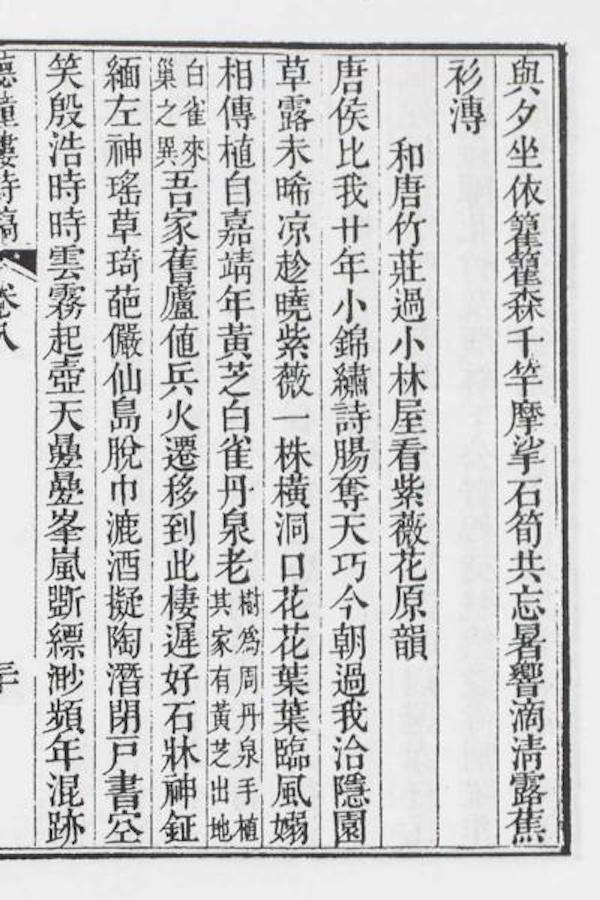 與夕坐依籊籊森千竿摩挲石筍共忘暑響滴清露蕉
衫漙
和唐竹莊過小林屋看紫薇花原韻
唐侯比我廿年小錦繡詩腸奪天巧今朝過我洽隱園
草露未晞凉趁曉紫薇一株橫洞口花花葉葉臨風嫋
相傳植自嘉靖年黃芝白雀丹泉老樹爲周丹泉手植其家有黃芝出地
白雀來巢之異吾家舊廬值兵火遷移到此棲遲好石牀神鉦
緬左神瑤草琦葩儼仙島脫巾漉酒擬陶潛閉戸書空
笑殷浩時時雲霧起壺天曡曡峯嵐斷縹渺頻年混跡
聽鐘樓詩稿 卷八